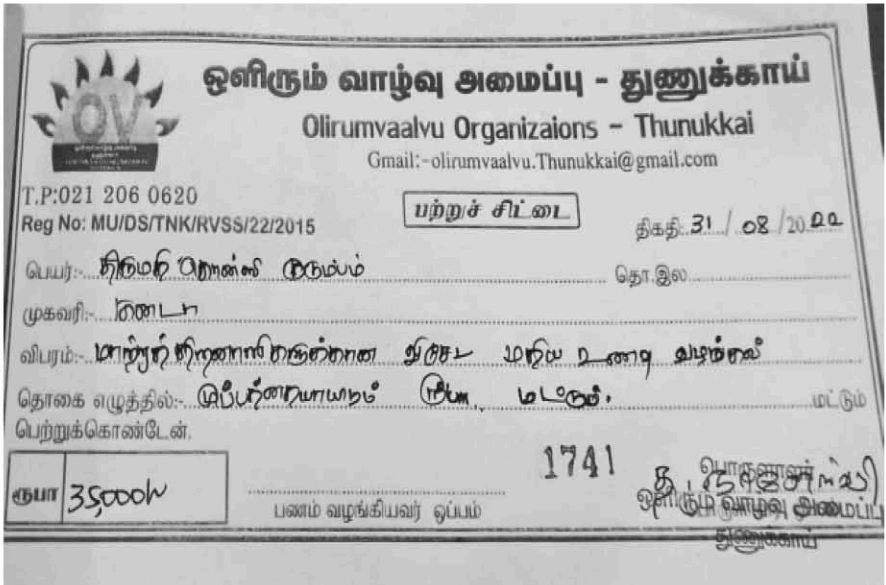 ஒளிரும் வாழ்வு அமைப்பு - துணுக்காய்
OV
Olirumvaalvu Organizaions - Thunukkai
Gmail:-olirumvaalvu.Thunukkai@gmail.com
T.P:021 206 0620
Reg No: MU/DS/TNK/RVSS/22/2015
பற்றுச் சிட்டை
திகதி: 31 / 08 / 2022
பெயர்:- திருமதி குடும்பம் தொ.இல
முகவரி:- கனடா
விபரம்:- மாற்றுத்திறனாளிகளுக்கான விசேட மதிய உணவு வழங்கல்
தொகை எழுத்தில்:- முப்பத்தையாயிரம் ரூபா மட்டும். மட்டும்
பெற்றுக்கொண்டேன்.
ரூபா 35,000/=
1741
பணம் வழங்கியவர் ஒப்பம்
பொருளாளர்
ஒளிரும் வாழ்வு அமைப்பு
துணுக்காய்